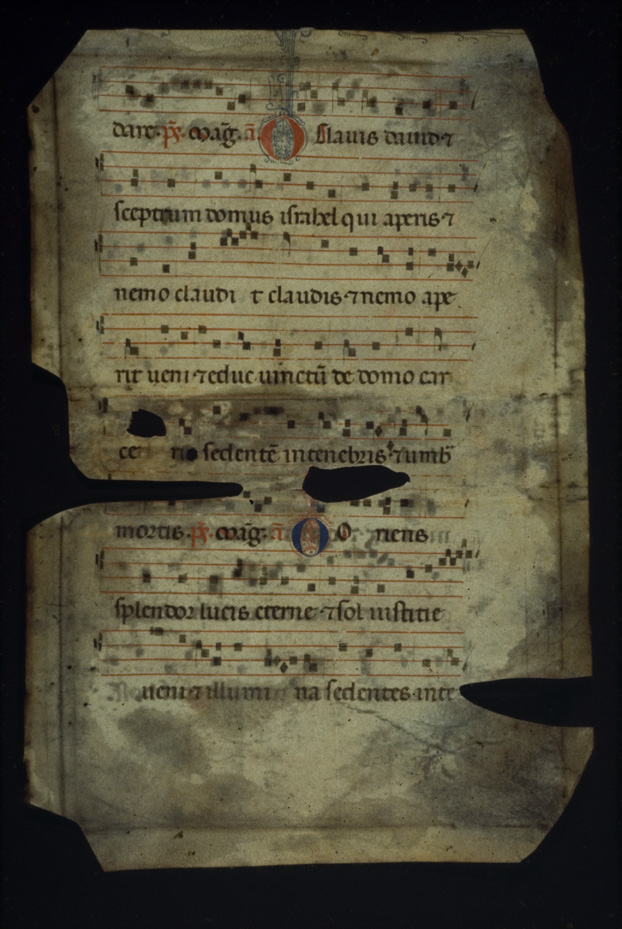 dare. p̄x. Mag̃. a̅. O Clavis david ⁊
sceptrum domus israhel qui aperis ⁊
nemo claudi t claudis ⁊ nemo ape
rit veni ⁊ educ vinctū de domo car
ce ris sedentē in tenebris ⁊ umb
mortis. p̄x. Mag̃. a̅. O O riens
splendor lucis eterne ⁊ sol iustitie
veni ⁊ illumi na sedentes inte